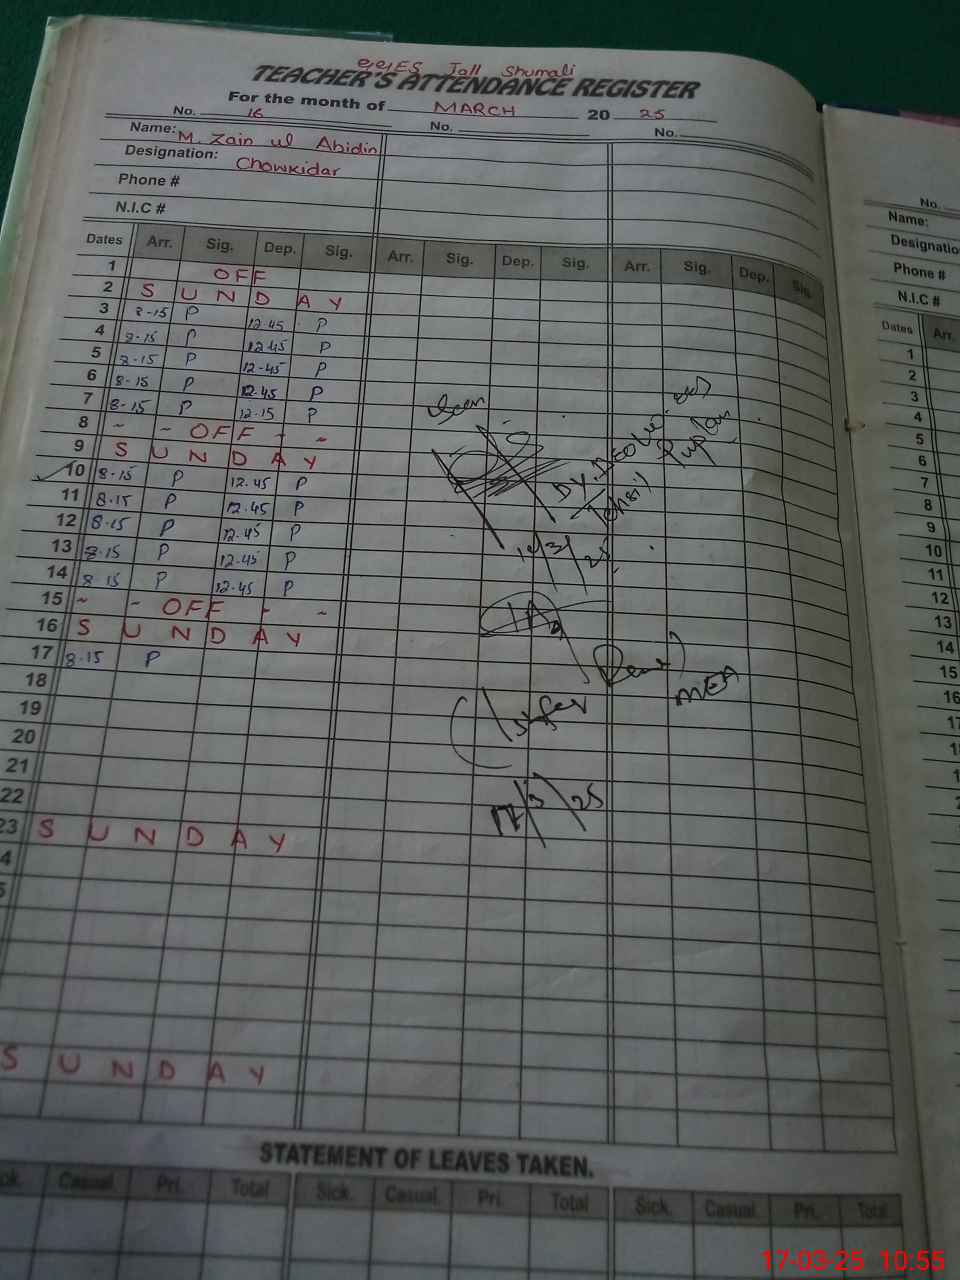 GGES Jall Shumali
TEACHER'S ATTENDANCE REGISTER
For the month of MARCH 20 25
No. 16 No. No.
Name: M. Zain ul Abidin
Designation: Chowkidar
Phone #
N.I.C #
Dates Arr. Sig. Dep. Sig. Arr. Sig. Dep. Sig. Arr. Sig. Dep. Sig.
1 OFF
2 SUNDAY
3 8-15 P 12.45 P
4 8-15 P 12.45 P
5 8-15 P 12-45 P
6 8-15 P 12.45 P
7 8-15 P 12.15 P
8 - - OFF - -
9 SUNDAY
10 8-15 P 12.45 P
11 8-15 P 12.45 P
12 8-15 P 12.45 P
13 8-15 P 12.45 P
14 8-15 P 12-45 P
15 - - OFF - -
16 SUNDAY
17 8-15 P
18
19
20
21
22
23 SUNDAY
4
5
SUNDAY
Seen
Tehsil
MEA
17/3/25
STATEMENT OF LEAVES TAKEN.
Casual. Pri. Total Sick. Casual. Pri. Total Sick. Casual. Pri. Total
No.
Name:
Designatio
Phone #
N.I.C #
Dates Arr.
1
2
3
4
5
6
7
8
9
10
11
12
13
14
15
16
17-03-25 10:55